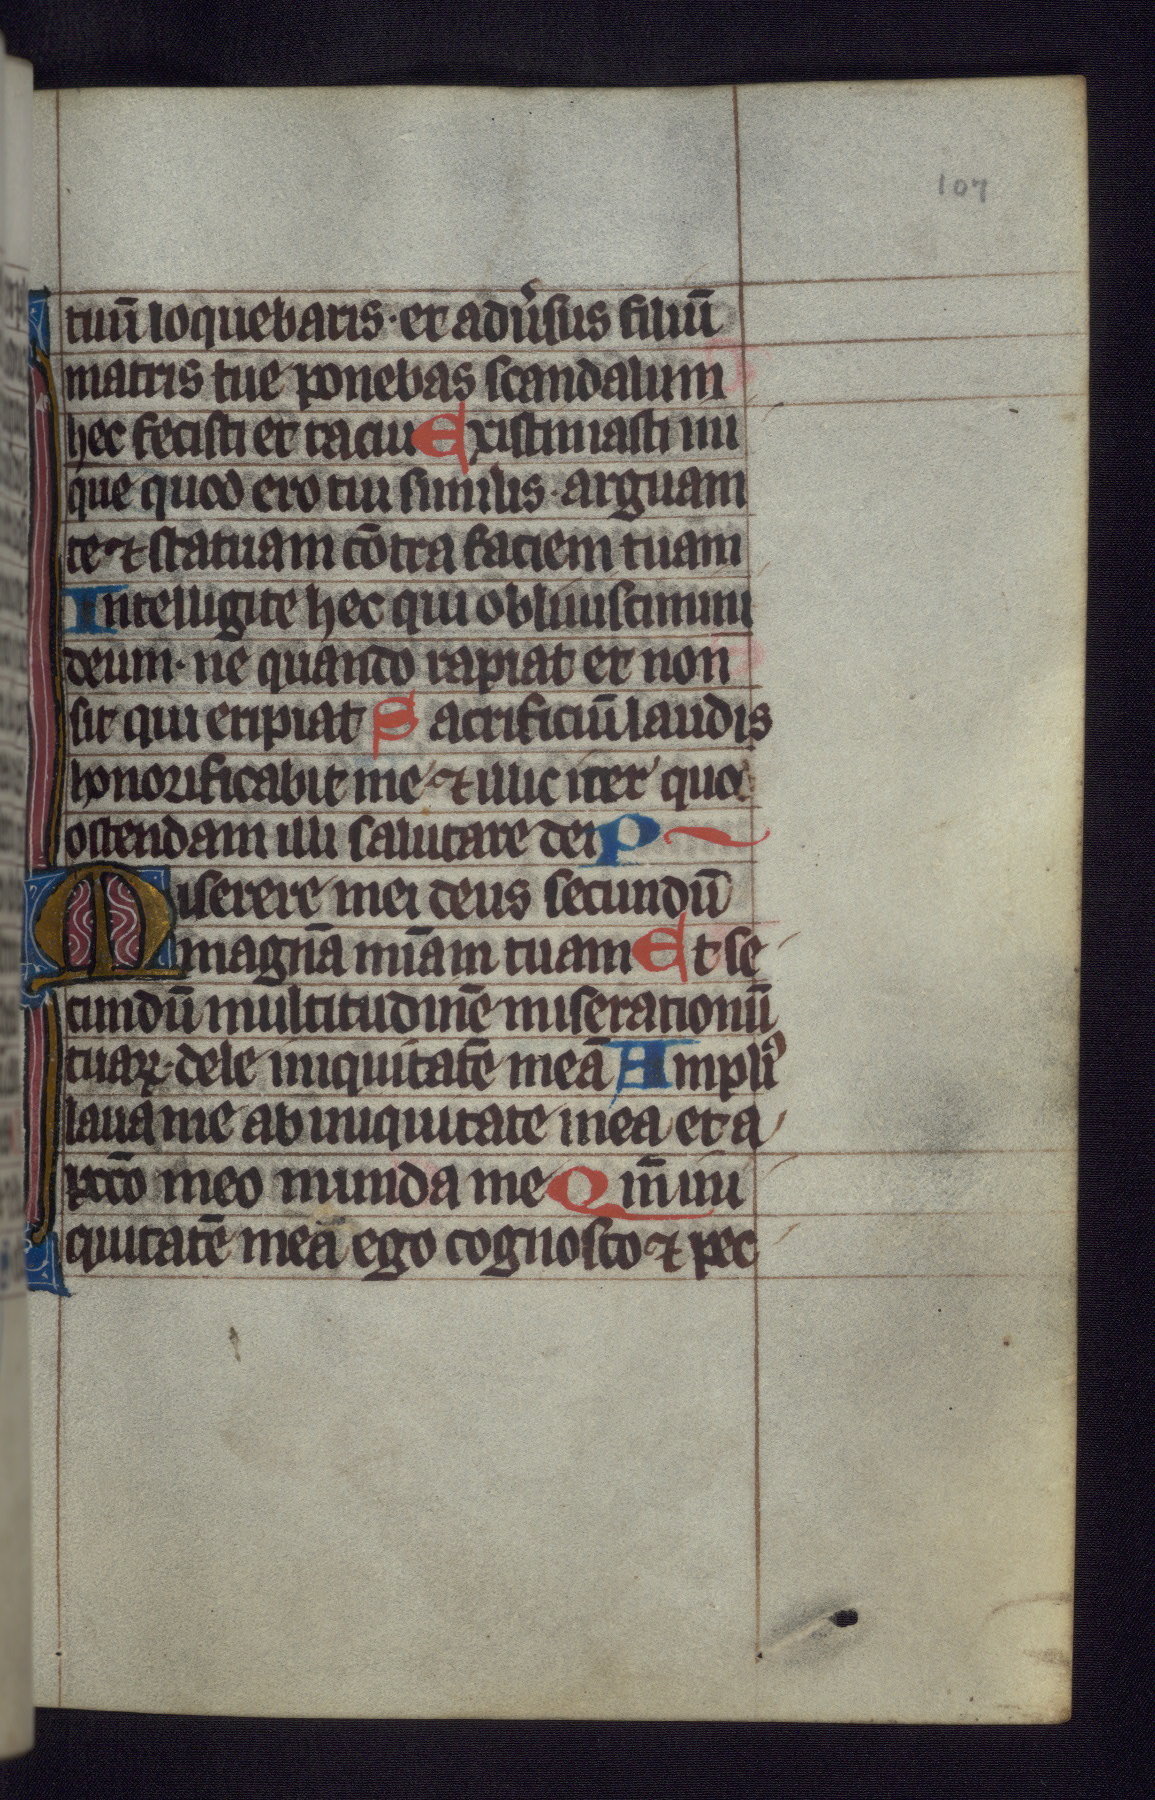 107
tuū loquebaris · et adúsus filiū
matris tue ponebas scandalum
hec fecisti et tacui Existimasti ini
que quod ero tui similis · arguam
te ⁊ statuam cōtra faciem tuam
Intelligite hec qui obliuiscimini
deum · ne quando rapiat et non
sit qui eripiat Sacrificiū laudis
honorificabit me · ⁊ illic iter quo
ostendam illi salutare dei P
Miserere mei deus secundū
magnā miam tuam Et se
cundū multitudinē miserationū
tuaꝝ · dele iniquitatē meā Ampliꝰ
laua me ab iniquitate mea et a
pctō meo munda me Qm̄ ini
quitatē meā ego cognosco ⁊ pec